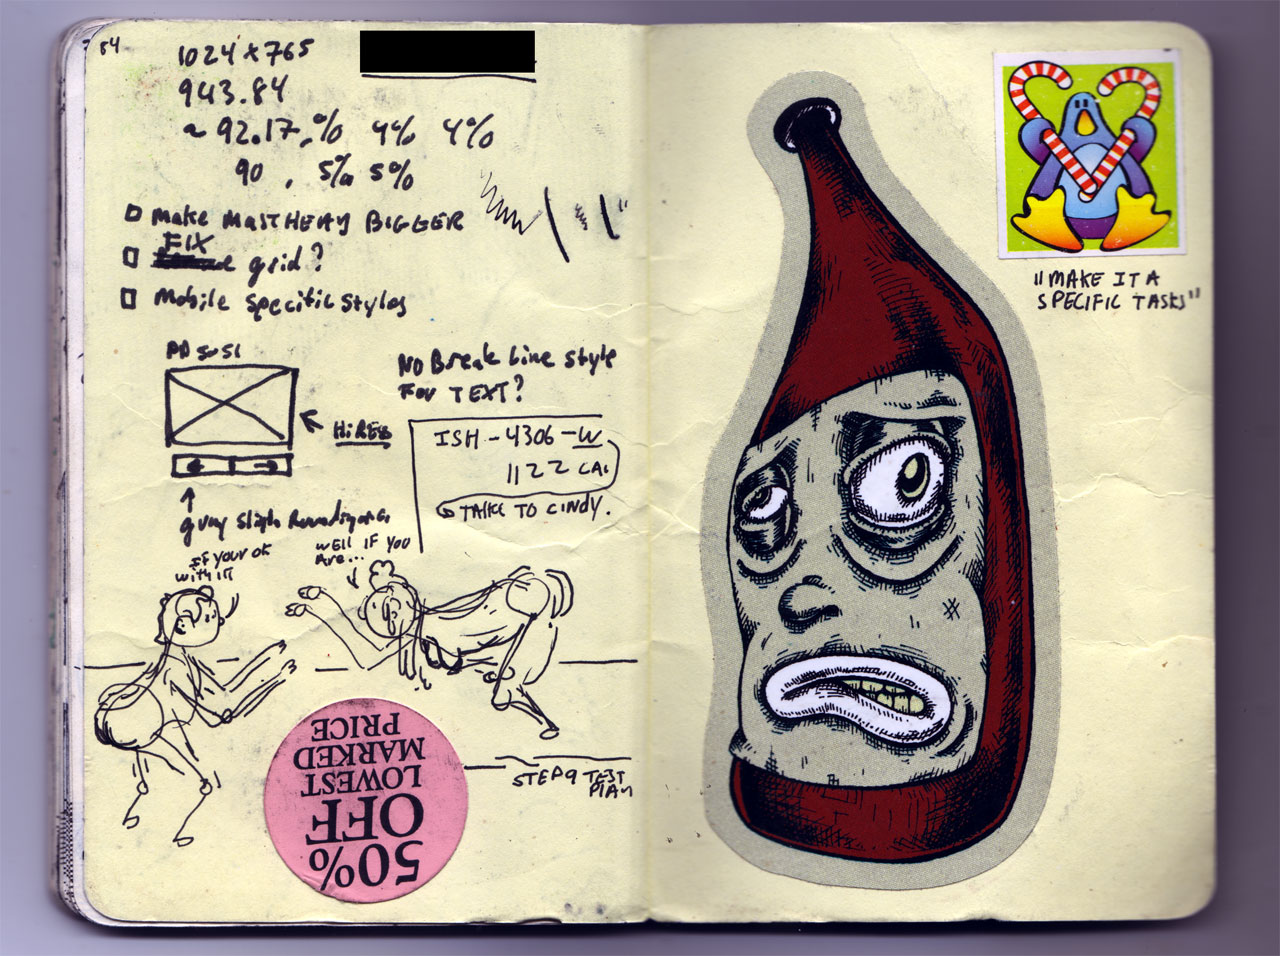 84
1024 x 765
943.84
~ 92.17.% 4% 4%
90 . 5% 5%
make MASTHEAD BIGGER
FIX
grid?
Mobile specific styles
HiRES
No Break Line style
For TEXT?
ISH-4306-W
1122 CAL
TALK TO CINDY.
gray
If your ok
with it
WELL IF YOU
Are...
STEP 9 TEST
PLAN
50%
OFF
LOWEST
MARKED
PRICE
"MAKE IT A
SPECIFIC TASKS"